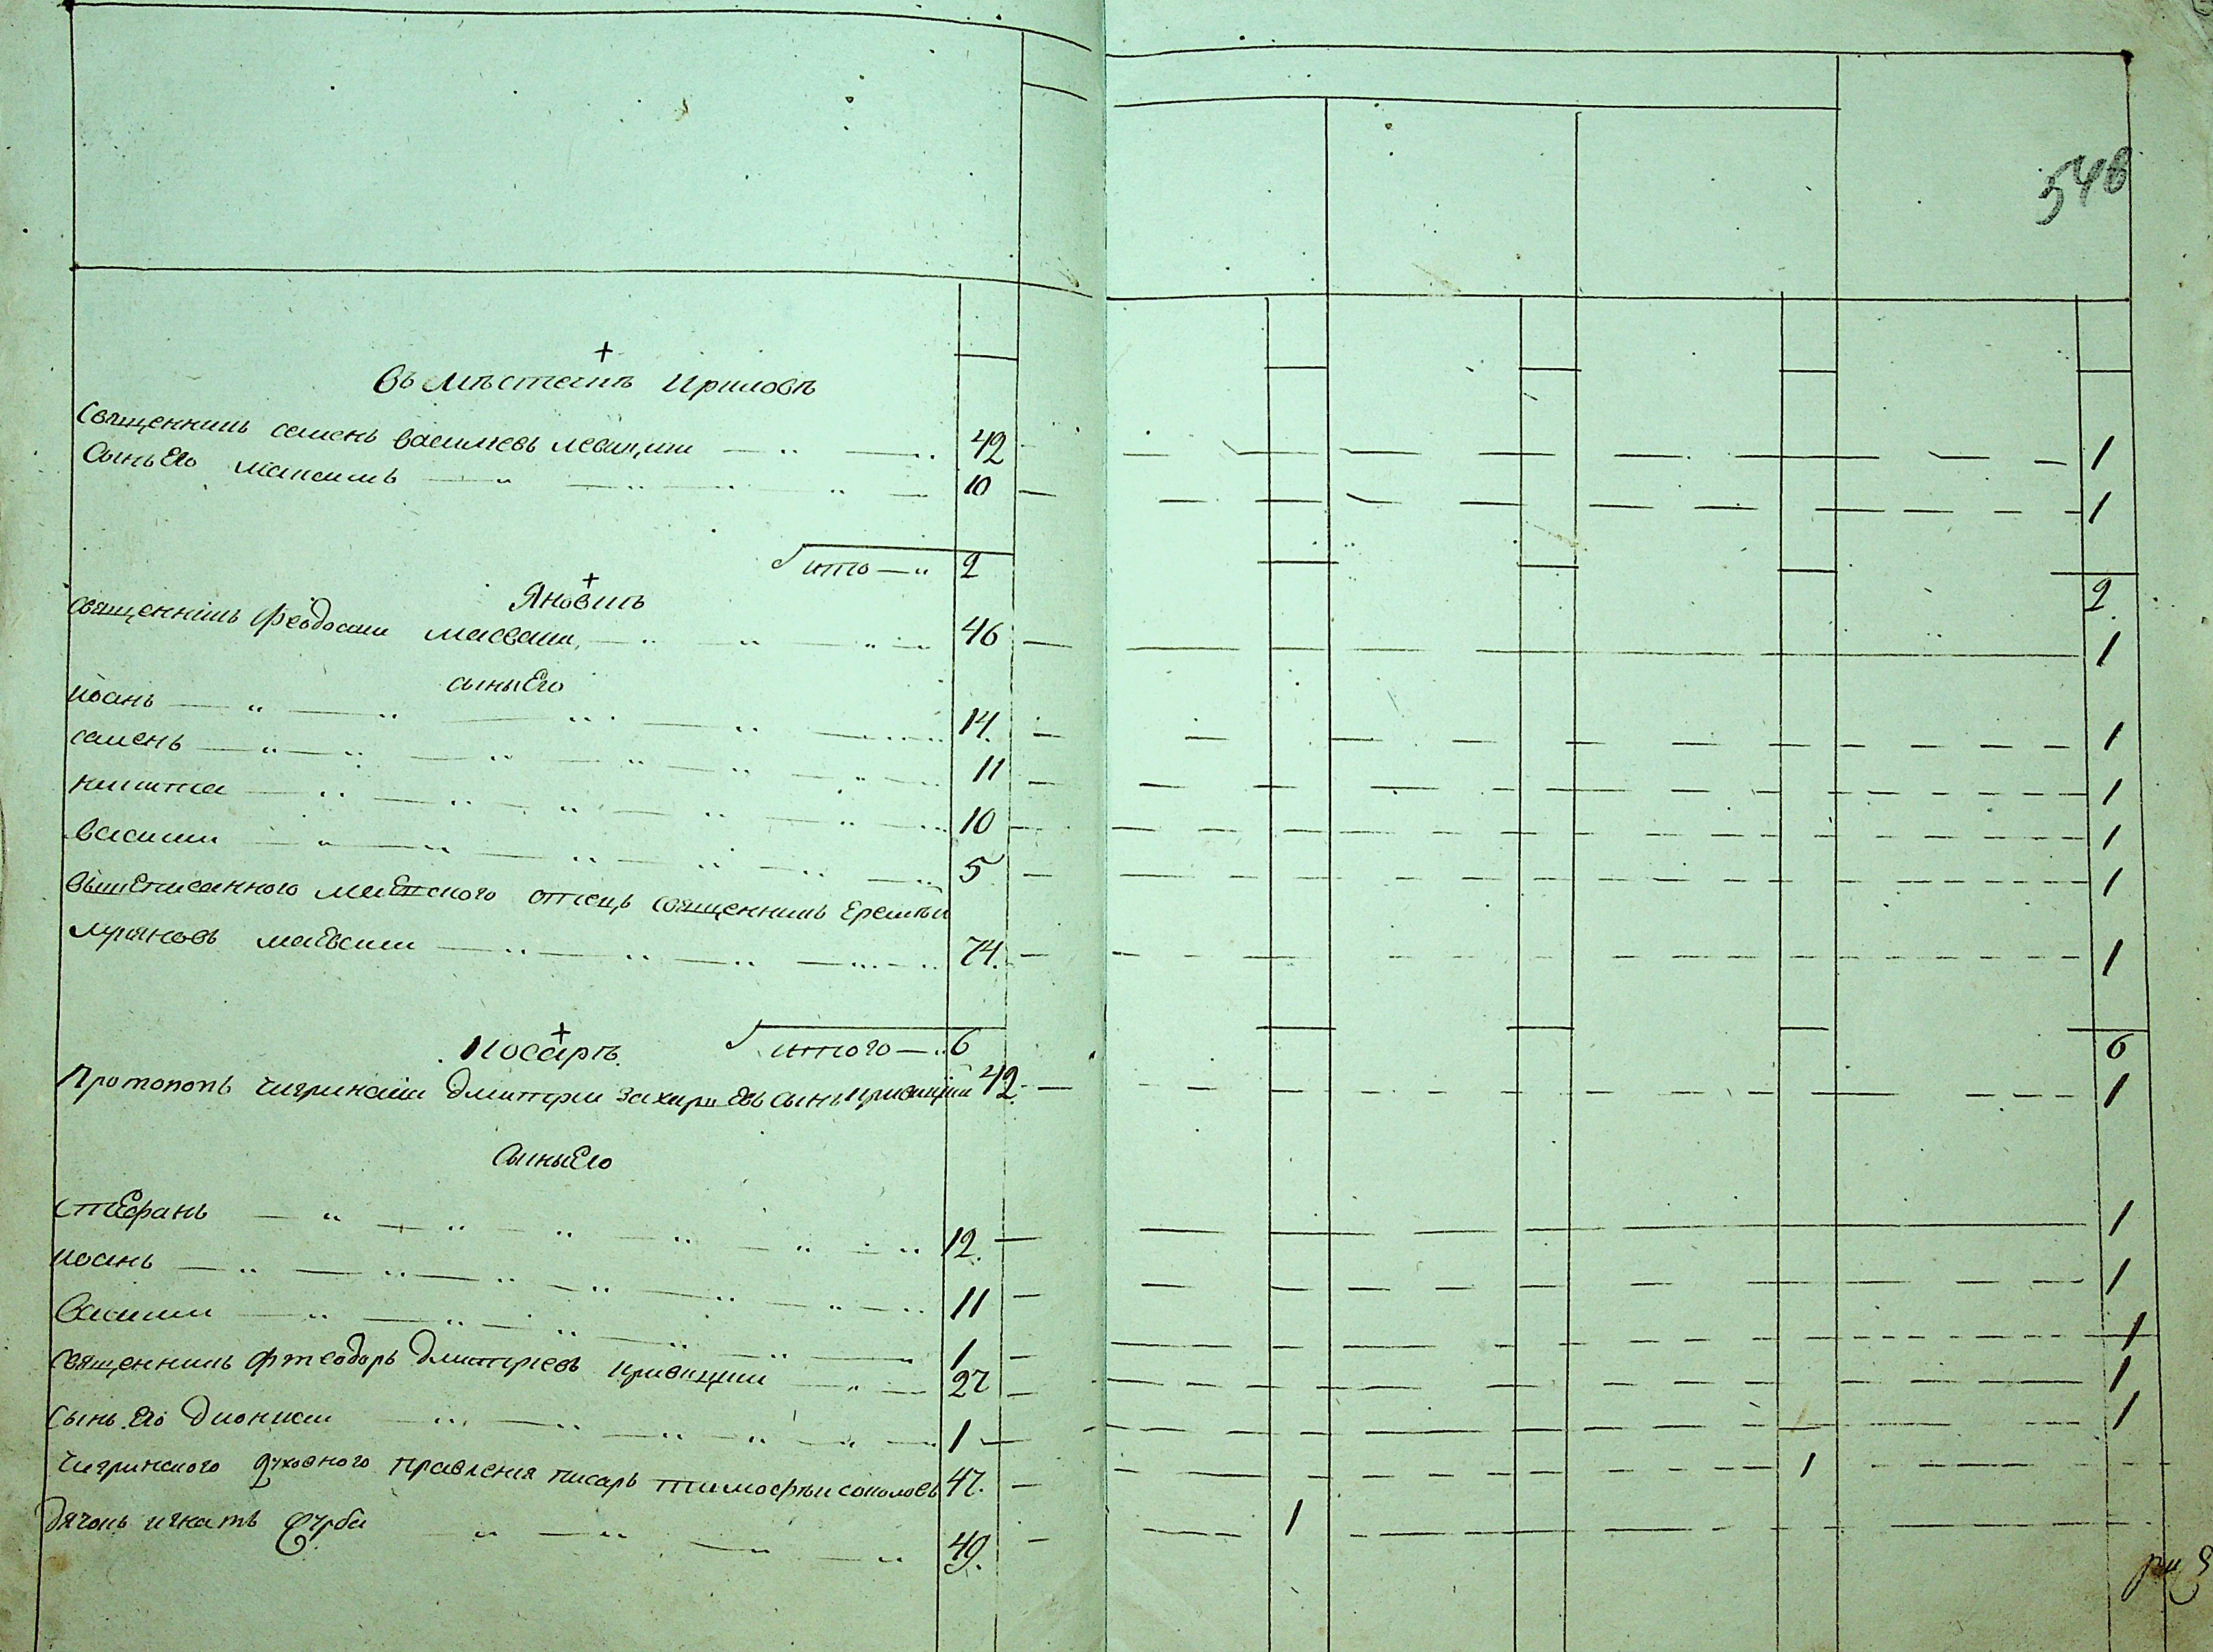 548
въ местечкѣ Крилове
Священникъ семенъ василиевъ левицкии 42 1
Сынъ Его максимъ 10 1
итго 2 2
Яновкѣ
священникъ Феодосии маевскии 46 1
сыны Его
иоанъ 14 1
семенъ 11 1
никита 10 1
василии 5 1
вышеписанного маевского отецъ священникъ Еремѣи
лукяновъ маевскии 74 1
итого 6 6
Косарѣ
Протопопъ чигринскии дмитрии захариевъ сынъ кривицкии 42 1
Сыны Его
стефанъ 12 1
иоанъ 11 1
василии 1 1
священникъ фтеодоръ дмитриевъ кривицкии 27 1
сынъ Его дионисии 1 1
чигринского духовного правления писарь тимофѣи соколовъ 47 1
дячокъ игнатъ 49 1